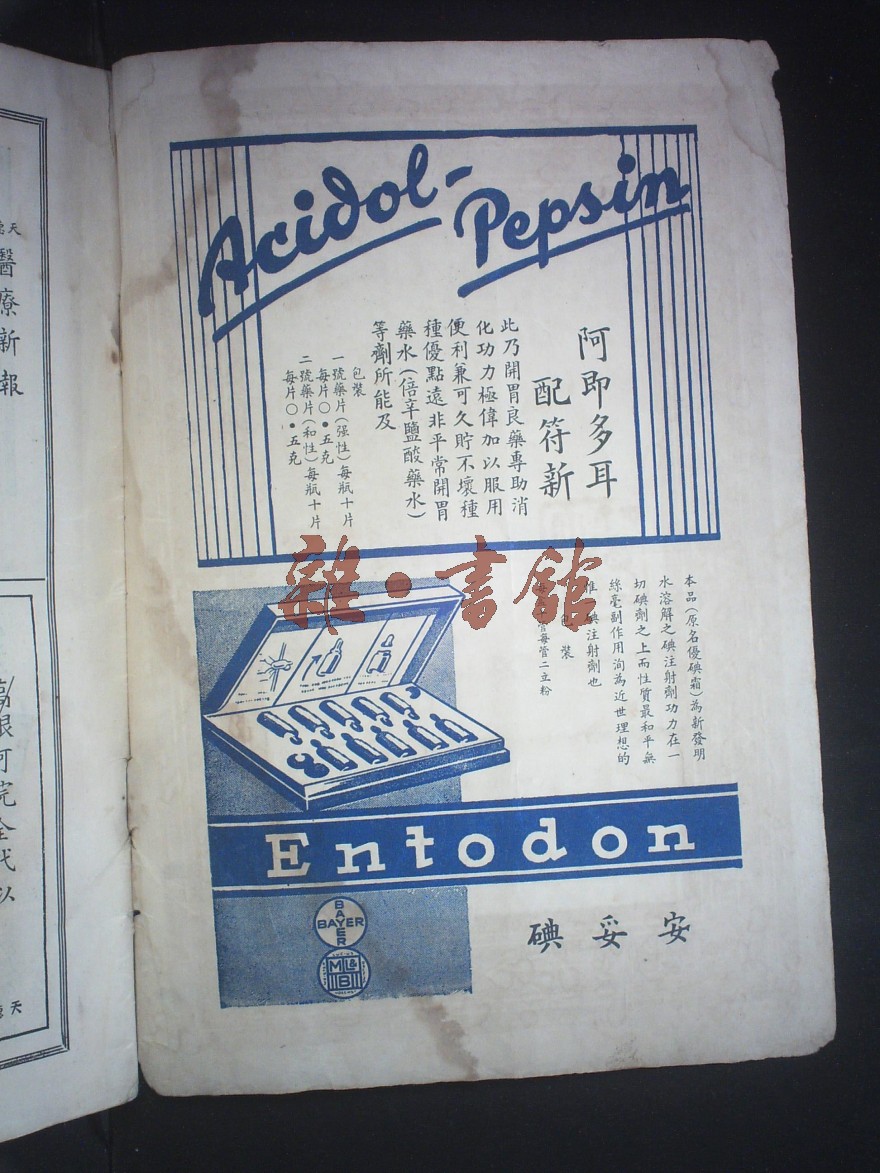 Acidol-
Pepsin
阿即多耳
配符新
此乃開胃良藥專助消
化功力極偉加以服用
便利兼可久貯不壞種
種優點遠非平常開胃
藥水(倍辛鹽酸藥水)
等劑所能及
包裝
一號藥片(强性)每瓶十片
每片〇·五克
二號藥片(和性)每瓶十片
每片〇·五克
雜·書館
本品(原名優碘霜)為新發明
水溶解之碘注射劑功力在一
切碘劑之上而性質最和平無
絲毫副作用洵為近世理想的
碘注射劑也
裝
管每管二立粉
Entodon
安妥碘
BAYER
BAYER
醫療新報
天